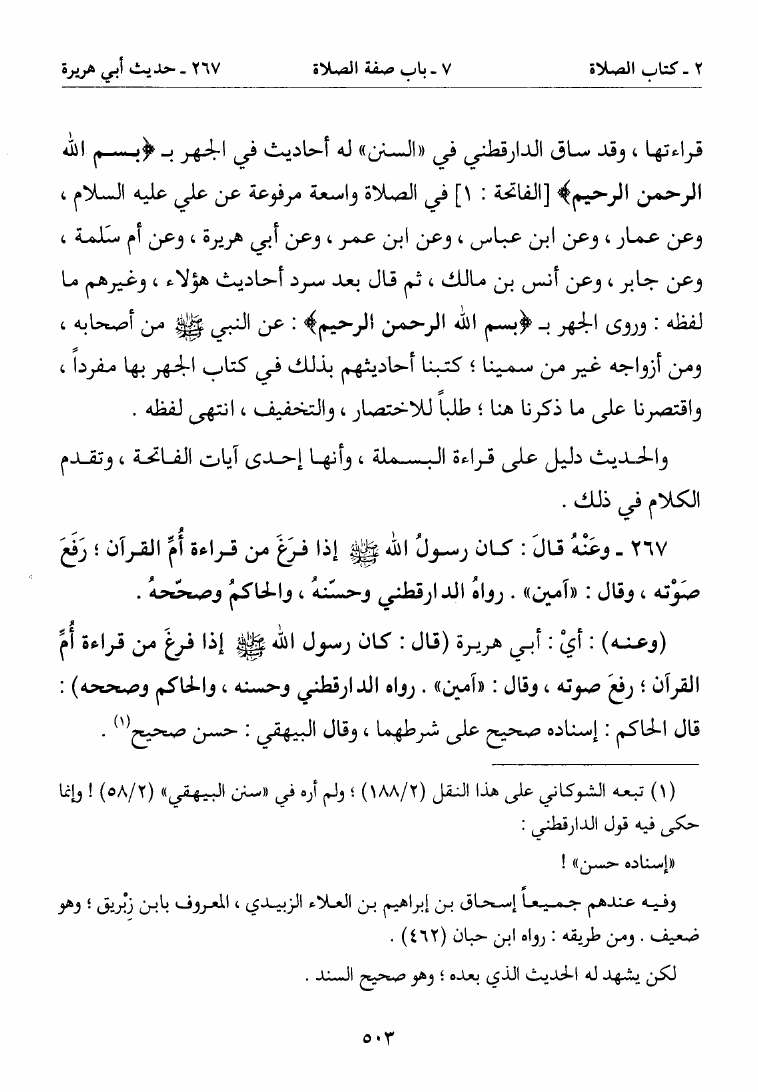 ٢ ـ كتاب الصلاة ٧ ـ باب صفة الصلاة ٢٦٧ ـ حديث أبي هريرة
قراءتها ، وقد ساق الدارقطني في «السنن» له أحاديث في الجهر بـ ﴿بسم الله
الرحمن الرحيم﴾ [الفاتحة : ١] في الصلاة واسعة مرفوعة عن علي عليه السلام ،
وعن عمار ، وعن ابن عباس ، وعن ابن عمر ، وعن أبي هريرة ، وعن أم سَلمة ،
وعن جابر ، وعن أنس بن مالك ، ثم قال بعد سرد أحاديث هؤلاء ، وغيرهم ما
لفظه : وروى الجهر بـ ﴿بسم الله الرحمن الرحيم﴾ : عن النبي ﷺ من أصحابه ،
ومن أزواجه غير من سمينا ؛ كتبنا أحاديثهم بذلك في كتاب الجهر بها مفرداً ،
واقتصرنا على ما ذكرنا هنا ؛ طلباً للاختصار ، والتخفيف ، انتهى لفظه .
والحديث دليل على قراءة البسملة ، وأنها إحدى آيات الفاتحة ، وتقدم
الكلام في ذلك .
٢٦٧ ـ وعَنْهُ قالَ : كان رسولُ الله ﷺ إذا فرَغَ من قراءة أُمِّ القرآن ؛ رَفَعَ
صَوْته ، وقال : «آمين» . رواهُ الدارقطني وحسّنهُ ، والحاكمُ وصحّحهُ .
(وعنه) : أيْ : أبي هريرة (قال : كان رسول الله ﷺ إذا فرغَ من قراءة أُمِّ
القرآن ؛ رفعَ صوته ، وقال : «آمين» . رواه الدارقطني وحسنه ، والحاكم وصححه) :
قال الحاكم : إسناده صحيح على شرطهما ، وقال البيهقي : حسن صحيح(١) .
(١) تبعه الشوكاني على هذا النقل (١٨٨/٢) ؛ ولم أره في «سنن البيهقي» (٥٨/٢) ! وإنما
حكى فيه قول الدارقطني :
«إسناده حسن» !
وفيه عندهم جميعاً إسحاق بن إبراهيم بن العلاء الزبيدي ، المعروف بابن زِبْريق ؛ وهو
ضعيف . ومن طريقه : رواه ابن حبان (٤٦٢) .
لكن يشهد له الحديث الذي بعده ؛ وهو صحيح السند .
٥٠٣